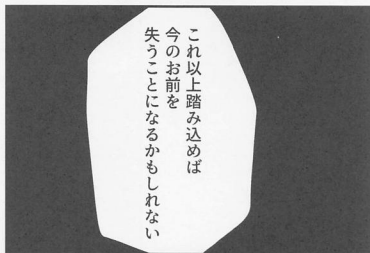 これ以上踏み込めば
今のお前を
失うことになるかもしれない